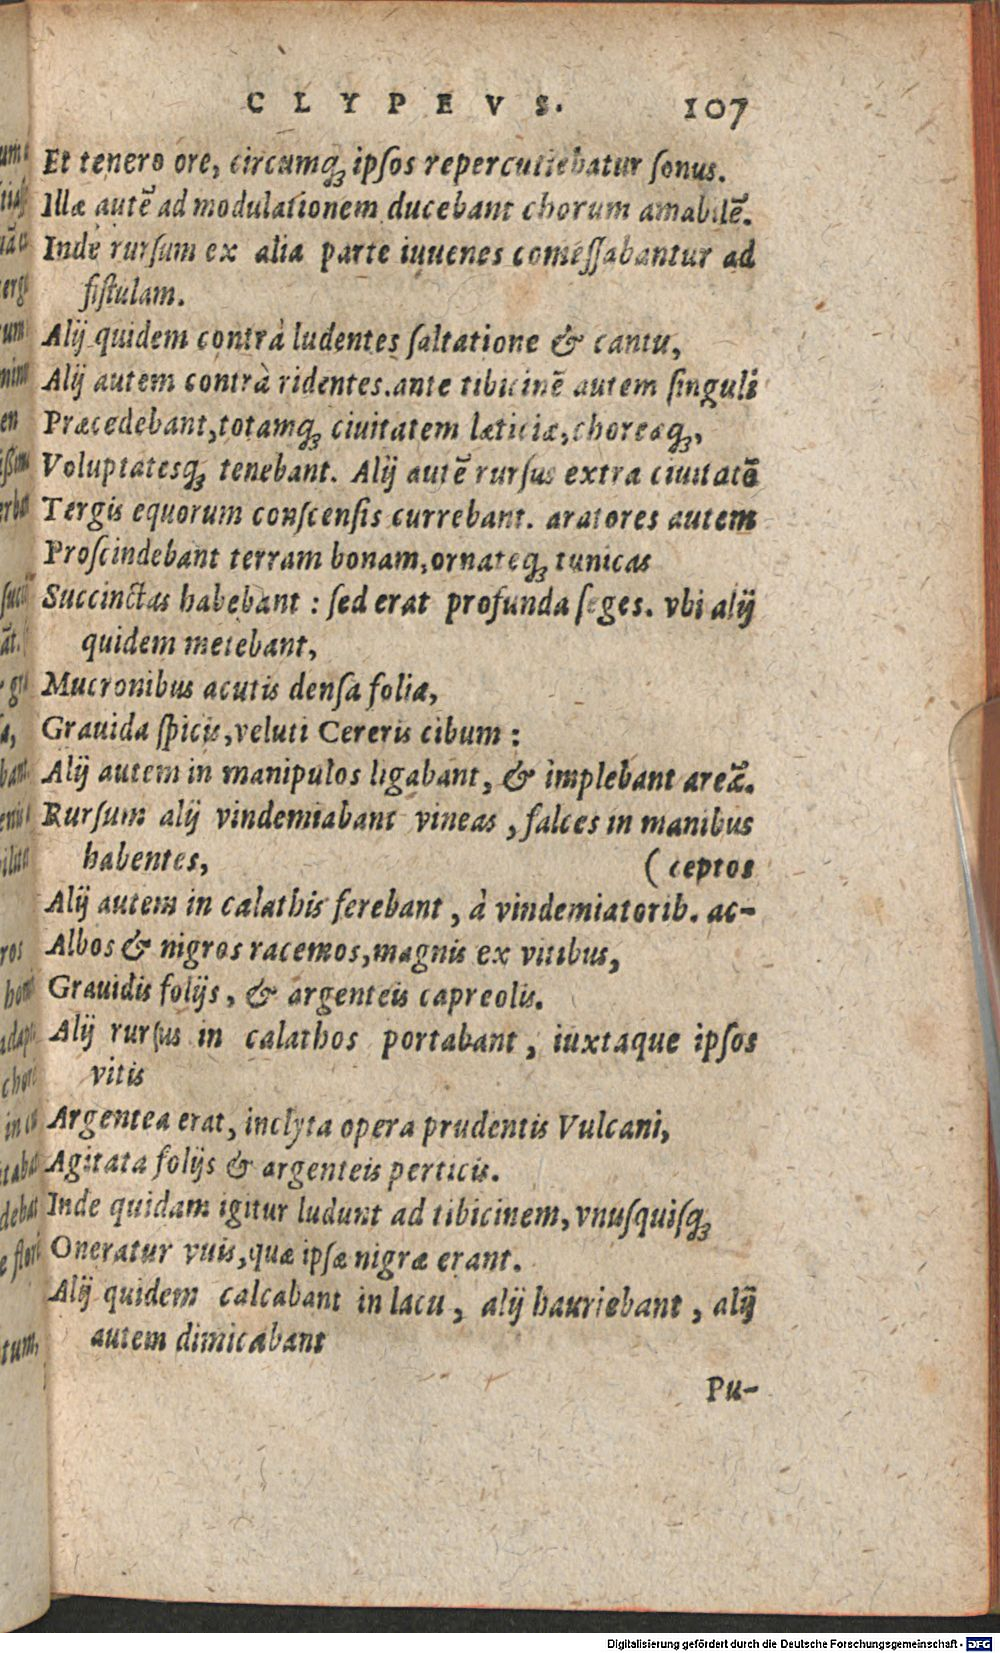 CLYPEVS. 107
Et tenero ore, circumq́ꝫ ipſos repercutiebatur ſonus.
Illæ autẽ ad modulationem ducebant chorum amabilẽ.
Inde rurſum ex alia parte iuuenes comeſſabantur ad
fiſtulam.
Alij quidem contrà ludentes ſaltatione & cantu,
Alij autem contrà ridentes.ante tibicinẽ autem ſinguli
Præcedebant,totamq́ꝫ ciuitatem læticiæ,choreæq́ꝫ,
Voluptatesq́ꝫ tenebant. Alij autẽ rurſus extra ciuitatẽ
Tergis equorum conſcenſis currebant. aratores autem
Proſcindebant terram bonam,ornateq́ꝫ tunicas
Succinctas habebant : ſed erat profunda ſeges. vbi alij
quidem metebant,
Mucronibus acutis denſa folia,
Grauida ſpicis,veluti Cereris cibum :
Alij autem in manipulos ligabant, & implebant areã.
Rurſum alij vindemiabant vineas , falces in manibus
habentes, (ceptos
Alij autem in calathis ferebant , à vindemiatorib. ac-
Albos & nigros racemos,magnis ex vitibus,
Grauidis folijs, & argenteis capreolis.
Alij rurſus in calathos portabant , iuxtaque ipſos
vitis
Argentea erat, inclyta opera prudentis Vulcani,
Agitata folijs & argenteis perticis.
Inde quidam igitur ludunt ad tibicinem, vnuſquiſq́ꝫ
Oneratur vuis,quæ ipſæ nigræ erant.
Alij quidem calcabant in lacu , alij hauriebant , alij
autem dimicabant
Pu-
Digitalisierung gefördert durch die Deutsche Forschungsgemeinschaft - DFG